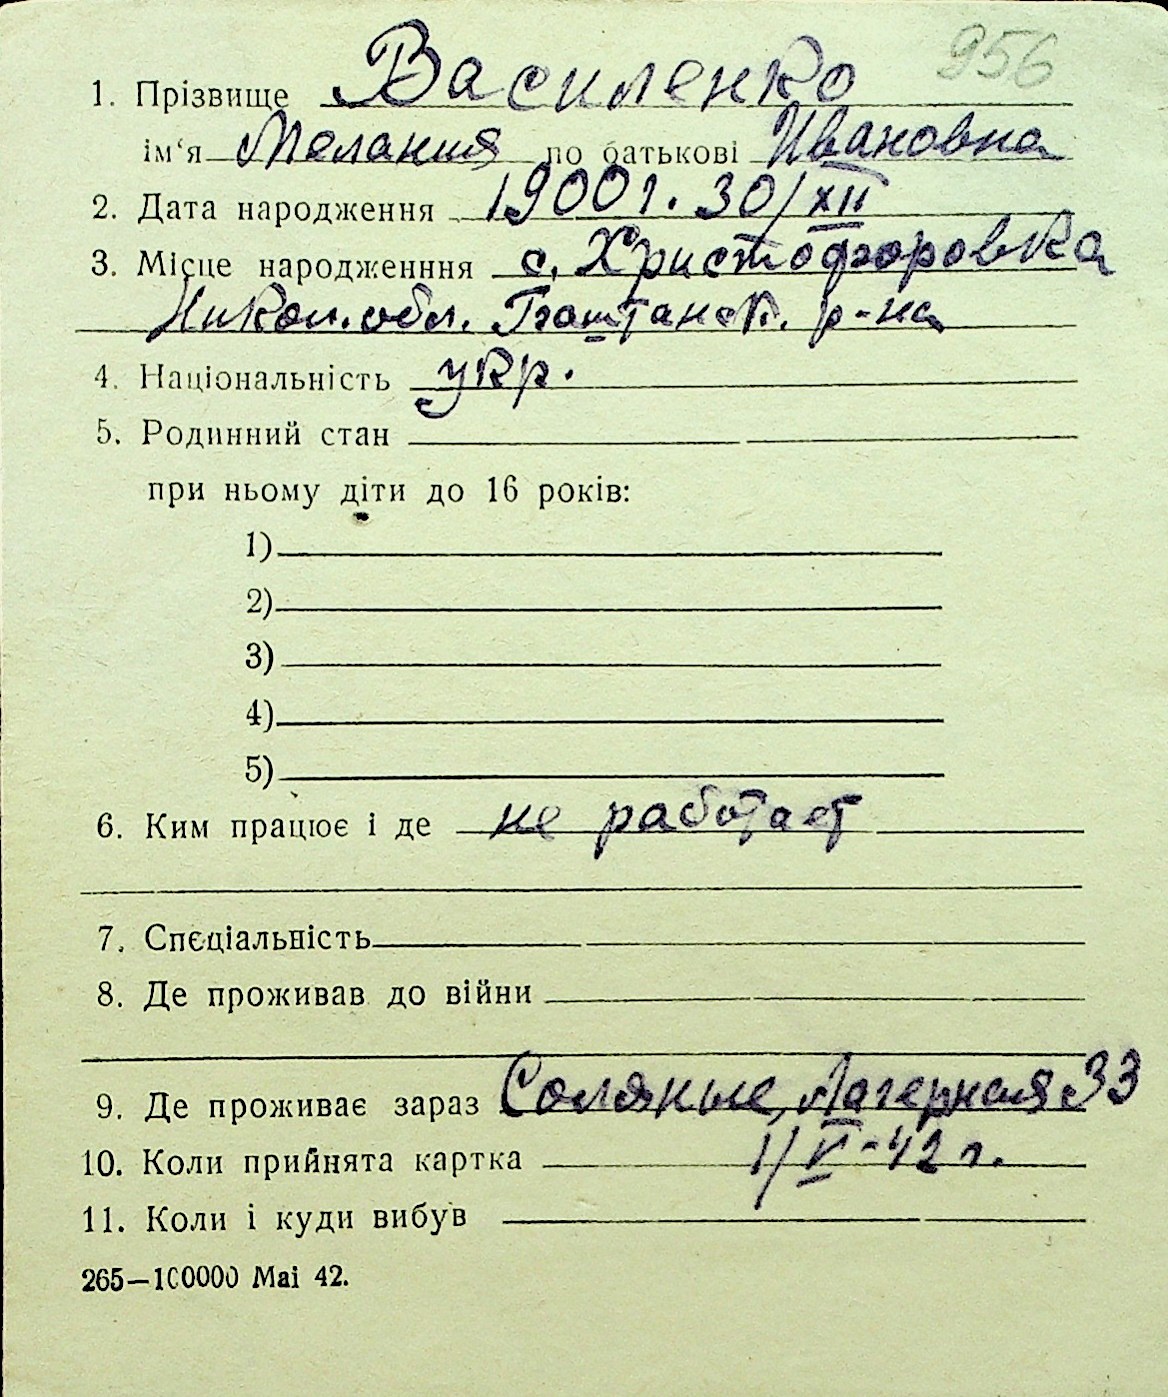 956
1. Прізвище Василенко
ім‘я Мелания по батькові Ивановна
2. Дата народження 1900 г. 30/XII
3. Місце народженння с. Христофоровка
Никол. обл. Баштанск. р-на
4. Національність укр.
5. Родинний стан
при ньому діти до 16 років:
1)
2)
3)
4)
5)
6. Ким працює і де не работает
7. Спєціальність
8. Де проживав до війни
9. Де проживає зараз Соляные, Лагерная 33
10. Коли прийнята картка 1/V-42 г.
11. Коли і куди вибув
265—100000 Mai 42.